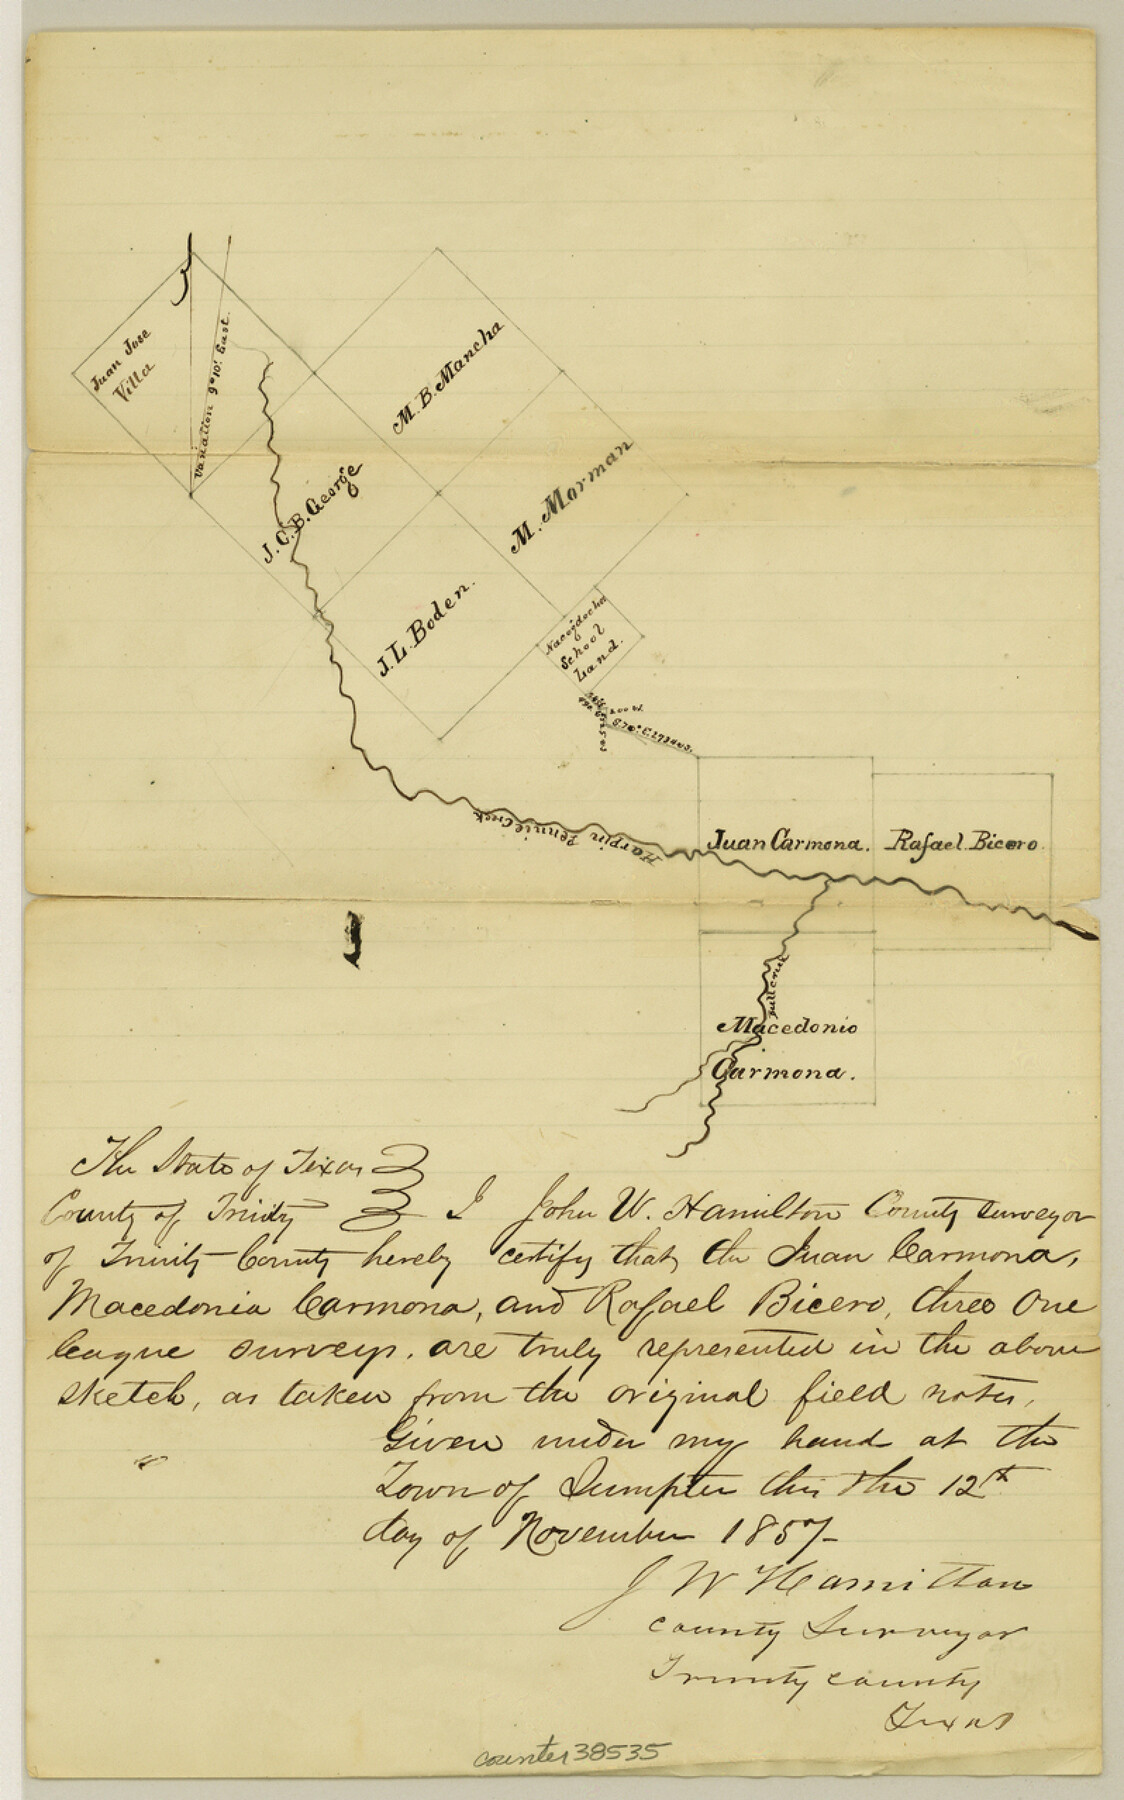 Juan Jose
Villa
Variation 9°10' East.
M. B. Mancha
J. C. B. George
M. Morman
J. L. Boden.
Nacogdoches
School
Land.
200 W.
Harpin Pennie Creek
Juan Carmona. Rafael Bicero
Macedonio
Carmona.
The State of Texas
County of Trinity I John W. Hamilton County Surveyor
of Trinity County hereby certify that the Juan Carmona,
Macedonia Carmona, and Rafael Bicero, three One
league surveys. are truly represented in the above
sketch, as taken from the original field notes,
Given under my hand at the
Town of Sumpter this the 12th
day of November 1857
J W Hamilton
County Surveyor
Trinity County
Texas
counter 38535